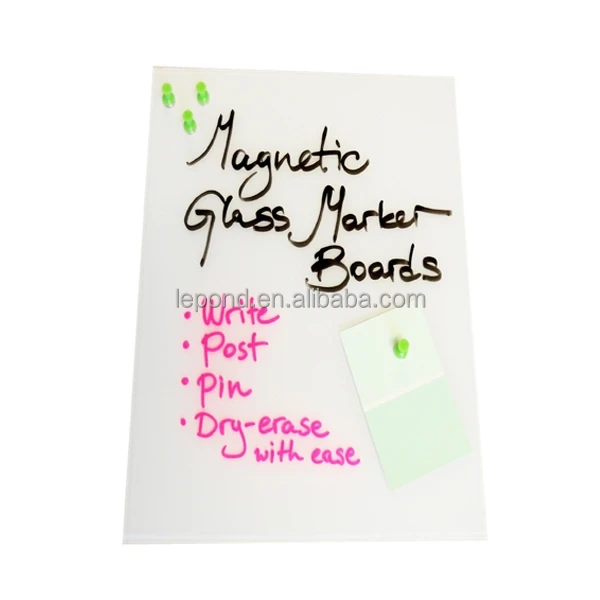 Magnetic
Glass Marker
Boards
lepond.en.alibaba.com
• Write
• Post
• Pin
• Dry-erase
with ease